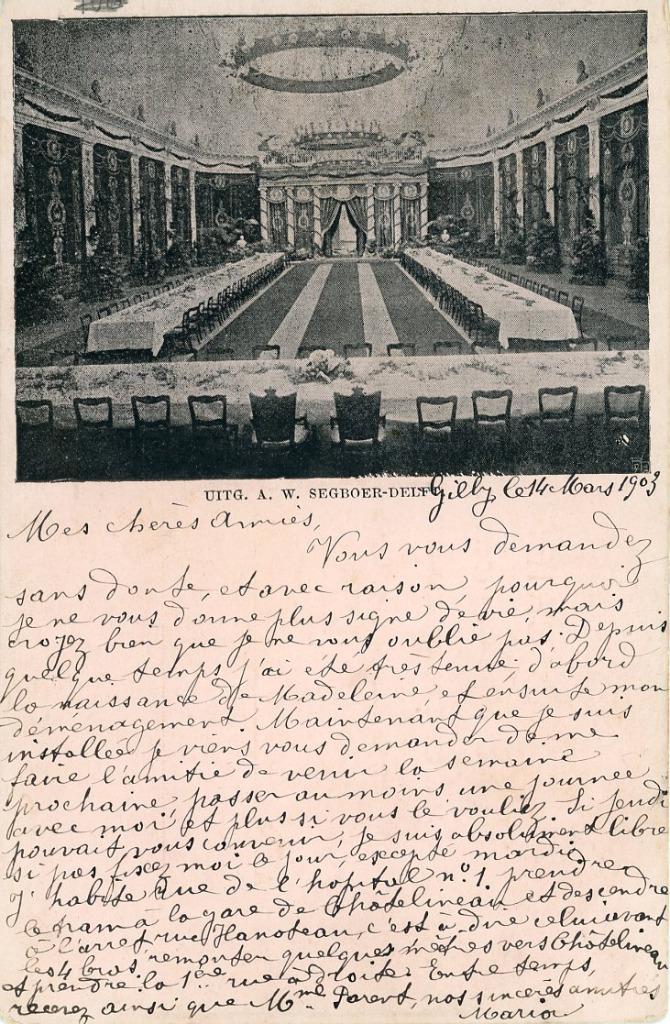 UITG. A. W. SEGBOER-DELFT
Gilly le 14 Mars 1903
Mes chères Amies,
Vous vous demandez
sans doute, et avec raison, pourquoi
je ne vous donne plus signe de vie, mais
croyez bien que je ne vous oublie pas. Depuis
quelque temps j'ai été très tenue: d'abord
la naissance de Madeleine, et ensuite mon
déménagement. Maintenant que je suis
installée, je viens vous demander de me
faire l'amitié de venir la semaine
prochaine, passer au moins une journée
avec moi, et plus si vous le voulez. Si jeudi
pouvait vous convenir, je suis absolument libre
si pas fixez moi le jour, excepté mardi.
J'habite rue de l'hopital n° 1, prendre
le tram à la gare de Châtelineau et descendre
à l'arret rue Hanoteau, c'est à dire celui avant
les 4 bras, remonter quelques mètres vers Châtelineau
et prendre la 1ère rue à droite. Entre temps,
recevez ainsi que Mme Parent, nos sincères amitiés
Maria